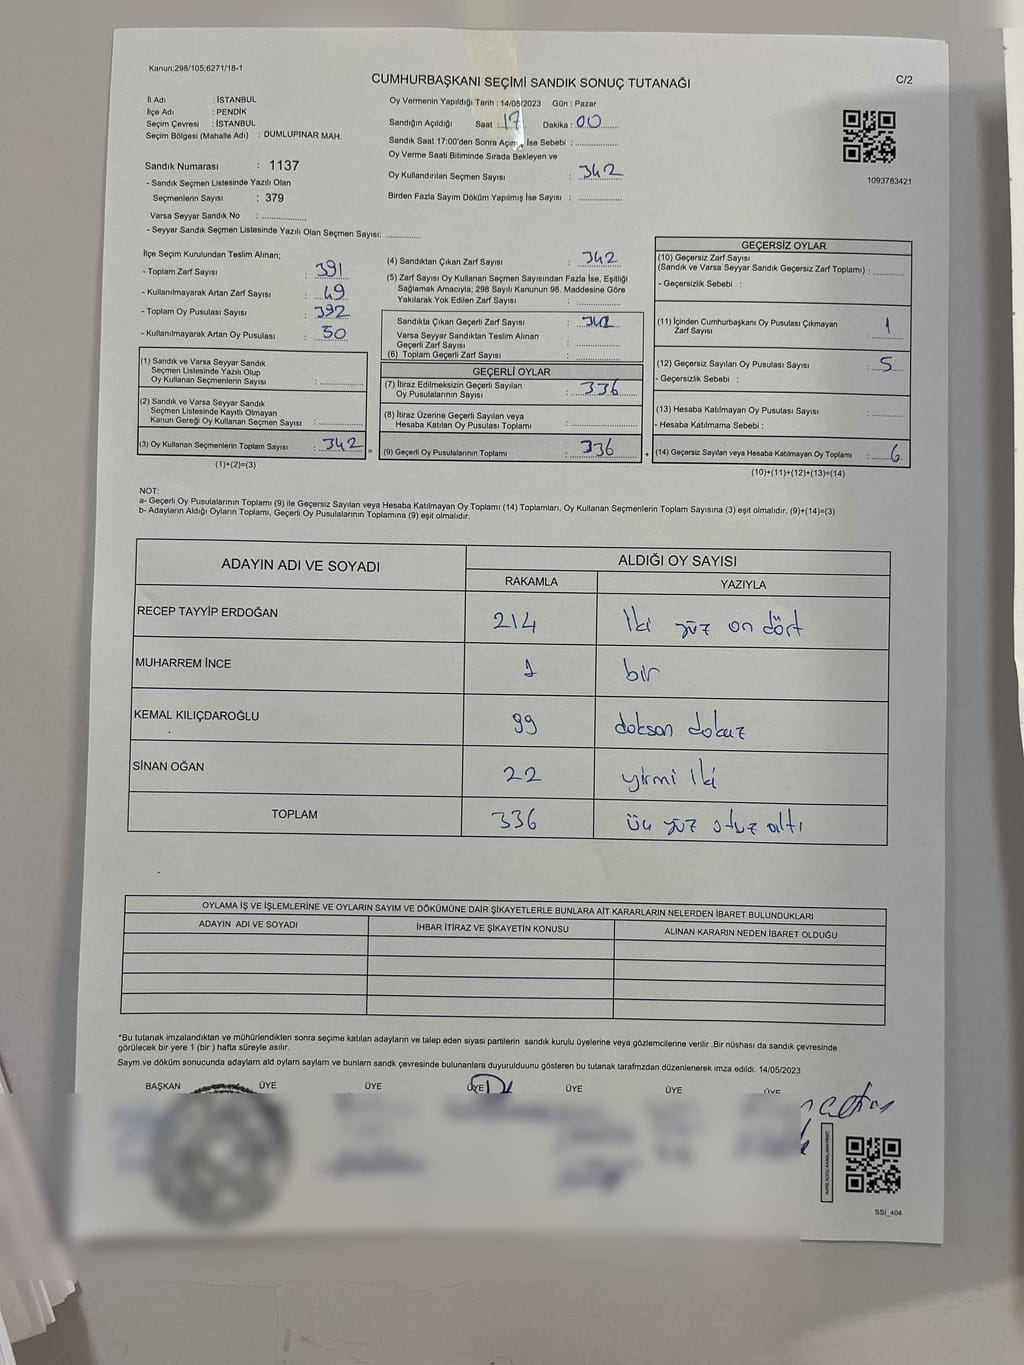 Kanun:298/105;6271/18-1
CUMHURBAŞKANI SEÇİMİ SANDIK SONUÇ TUTANAĞI
C/2
İl Adı : İSTANBUL
İlçe Adı : PENDİK
Seçim Çevresi : İSTANBUL
Seçim Bölgesi (Mahalle Adı) : DUMLUPINAR MAH.
Sandık Numarası : 1137
- Sandık Seçmen Listesinde Yazılı Olan
Seçmenlerin Sayısı : 379
Varsa Seyyar Sandık No : ..................
- Seyyar Sandık Seçmen Listesinde Yazılı Olan Seçmen Sayısı: ............
Oy Vermenin Yapıldığı Tarih : 14/05/2023 Gün : Pazar
Sandığın Açıldığı Saat : 17 Dakika : 00
Sandık Saat 17:00'den Sonra Açılmış İse Sebebi : ..................
Oy Verme Saati Bitiminde Sırada Bekleyen ve
Oy Kullandırılan Seçmen Sayısı : 342
Birden Fazla Sayım Döküm Yapılmış İse Sayısı : ..................
1093783421
İlçe Seçim Kurulundan Teslim Alınan;
- Toplam Zarf Sayısı : 391
- Kullanılmayarak Artan Zarf Sayısı : 49
- Toplam Oy Pusulası Sayısı : 392
- Kullanılmayarak Artan Oy Pusulası : 50
(1) Sandık ve Varsa Seyyar Sandık
Seçmen Listesinde Yazılı Olup
Oy Kullanan Seçmenlerin Sayısı : ..................
(2) Sandık ve Varsa Seyyar Sandık
Seçmen Listesinde Kayıtlı Olmayan
Kanun Gereği Oy Kullanan Seçmen Sayısı : ..................
(3) Oy Kullanan Seçmenlerin Toplam Sayısı : 342 =
(1)+(2)=(3)
(4) Sandıktan Çıkan Zarf Sayısı : 342
(5) Zarf Sayısı Oy Kullanan Seçmen Sayısından Fazla İse, Eşitliği
Sağlamak Amacıyla; 298 Sayılı Kanunun 98. Maddesine Göre
Yakılarak Yok Edilen Zarf Sayısı : ..................
Sandıkta Çıkan Geçerli Zarf Sayısı : 342
Varsa Seyyar Sandıktan Teslim Alınan
Geçerli Zarf Sayısı : ..................
(6) Toplam Geçerli Zarf Sayısı : ..................
GEÇERLİ OYLAR
(7) İtiraz Edilmeksizin Geçerli Sayılan
Oy Pusulalarının Sayısı : 336
(8) İtiraz Üzerine Geçerli Sayılan veya
Hesaba Katılan Oy Pusulası Toplamı : ..................
(9) Geçerli Oy Pusulalarının Toplamı : 336 +
GEÇERSİZ OYLAR
(10) Geçersiz Zarf Sayısı
(Sandık ve Varsa Seyyar Sandık Geçersiz Zarf Toplamı) : ............
- Geçersizlik Sebebi :
(11) İçinden Cumhurbaşkanı Oy Pusulası Çıkmayan
Zarf Sayısı : 1
(12) Geçersiz Sayılan Oy Pusulası Sayısı : 5
- Geçersizlik Sebebi :
(13) Hesaba Katılmayan Oy Pusulası Sayısı : ............
- Hesaba Katılmama Sebebi :
(14) Geçersiz Sayılan veya Hesaba Katılmayan Oy Toplamı : 6
(10)+(11)+(12)+(13)=(14)
NOT:
a- Geçerli Oy Pusulalarının Toplamı (9) ile Geçersiz Sayılan veya Hesaba Katılmayan Oy Toplamı (14) Toplamları, Oy Kullanan Seçmenlerin Toplam Sayısına (3) eşit olmalıdır. (9)+(14)=(3)
b- Adayların Aldığı Oyların Toplamı, Geçerli Oy Pusulalarının Toplamına (9) eşit olmalıdır.
ADAYIN ADI VE SOYADI ALDIĞI OY SAYISI
RAKAMLA YAZIYLA
RECEP TAYYİP ERDOĞAN 214 iki yüz on dört
MUHARREM İNCE 1 bir
KEMAL KILIÇDAROĞLU 99 doksan dokuz
SİNAN OĞAN 22 yirmi iki
TOPLAM 336 üç yüz otuz altı
OYLAMA İŞ VE İŞLEMLERİNE VE OYLARIN SAYIM VE DÖKÜMÜNE DAİR ŞİKAYETLERLE BUNLARA AİT KARARLARIN NELERDEN İBARET BULUNDUKLARI
ADAYIN ADI VE SOYADI İHBAR İTİRAZ VE ŞİKAYETİN KONUSU ALINAN KARARIN NEDEN İBARET OLDUĞU
*Bu tutanak imzalandıktan ve mühürlendikten sonra seçime katılan adayların ve talep eden siyasi partilerin sandık kurulu üyelerine veya gözlemcilerine verilir .Bir nüshası da sandık çevresinde
görülecek bir yere 1 (bir ) hafta süreyle asılır.
Saym ve döküm sonucunda adaylarn ald oylarn saylarn ve bunlarn sandk çevresinde bulunanlara duyurulduunu gösteren bu tutanak tarafmzdan düzenlenerek imza edildi. 14/05/2023
BAŞKAN ÜYE ÜYE ÜYE ÜYE ÜYE ÜYE
SSI_404